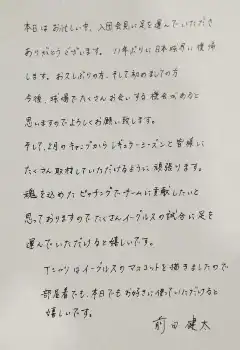 本日はお忙しい中、入団会見に足を運んでいただき
ありがとうございます。11年ぶりに日本球界に復帰
します。お久しぶりの方、そして初めましての方
今後、球場でたくさんお会いする機会があると
思いますのでよろしくお願い致します。
そして、2月のキャンプからレギュラーシーズンと皆様に
たくさん取材していただけるように頑張ります。
魂を込めたピッチングでチームに貢献したいと
思っておりますのでたくさんイーグルスの試合に足を
運んでいただけると嬉しいです。
Tシャツはイーグルスのマスコットを描きましたので
部屋着でも、本日でもお好きに使っていただけると
嬉しいです。
前田健太